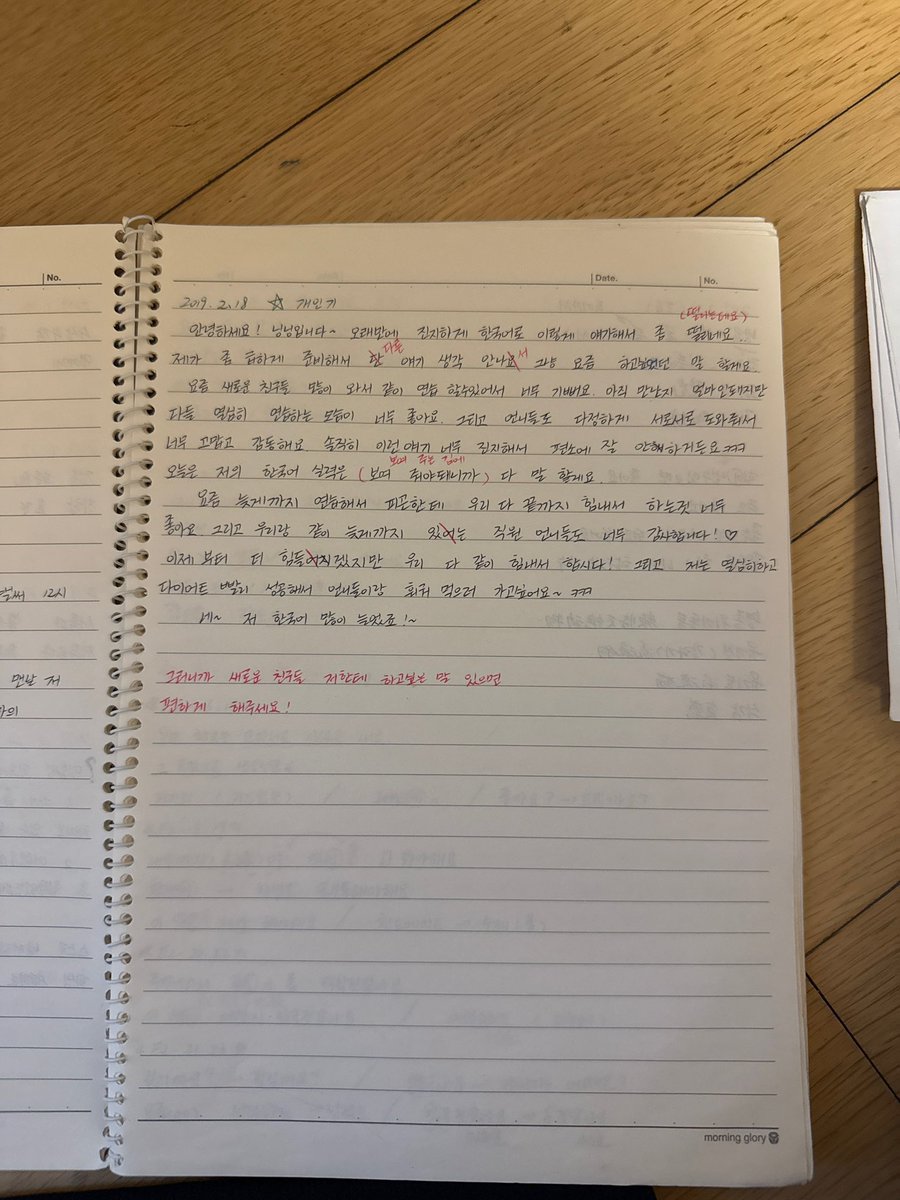 No.
Date. No.
2019.2.18 ☆ 개인기
(떨리는데요)
안녕하세요! 닝닝입니다~ 오래만에 진지하게 한국어로 이렇게 얘기해서 좀 떨리네요..
제가 좀 급하게 준비해서 딴 다른 얘기 생각 안나요서 그냥 요즘 하고싶던 말 할게요.
요즘 새로운 친구들 많이 와서 같이 연습 할수있어서 너무 기뻐요. 아직 만난지 얼마안돼지만
다들 열심히 연습하는 모습이 너무 좋아요. 그리고 언니들도 다정하게 서로서로 도와줘서
너무 고맙고 감동해요. 솔직히 이런 얘기 너무 진지해서 평소에 잘 안해하거든요ㅋㅋㅋ
보여 주는 김에
오늘은 저의 한국어 실력은 (보여 줘야돼니까) 다 말 할게요
요즘 늦게까지 연습해서 피곤한데 우리 다 끝까지 힘내서 하는것 너무
좋아요. 그리고 우리랑 같이 늦게까지 있어는 직원 언니들도 너무 감사합니다! ♡
이제 부터 더 힘들어지겠지만 우리 다 같이 힘내서 합시다! 그리고 저는 열심히하고
다이어트 빨리 성공해서 언니들이랑 훠궈 먹으러 가고싶어요~ ㅋㅋㅋ
네~ 저 한국어 많이 늘었죠!~
그러니까 새로운 친구들 저한테 하고싶은 말 있으면
편하게 해주세요!
벌써 12시
맨날 저
morning glory